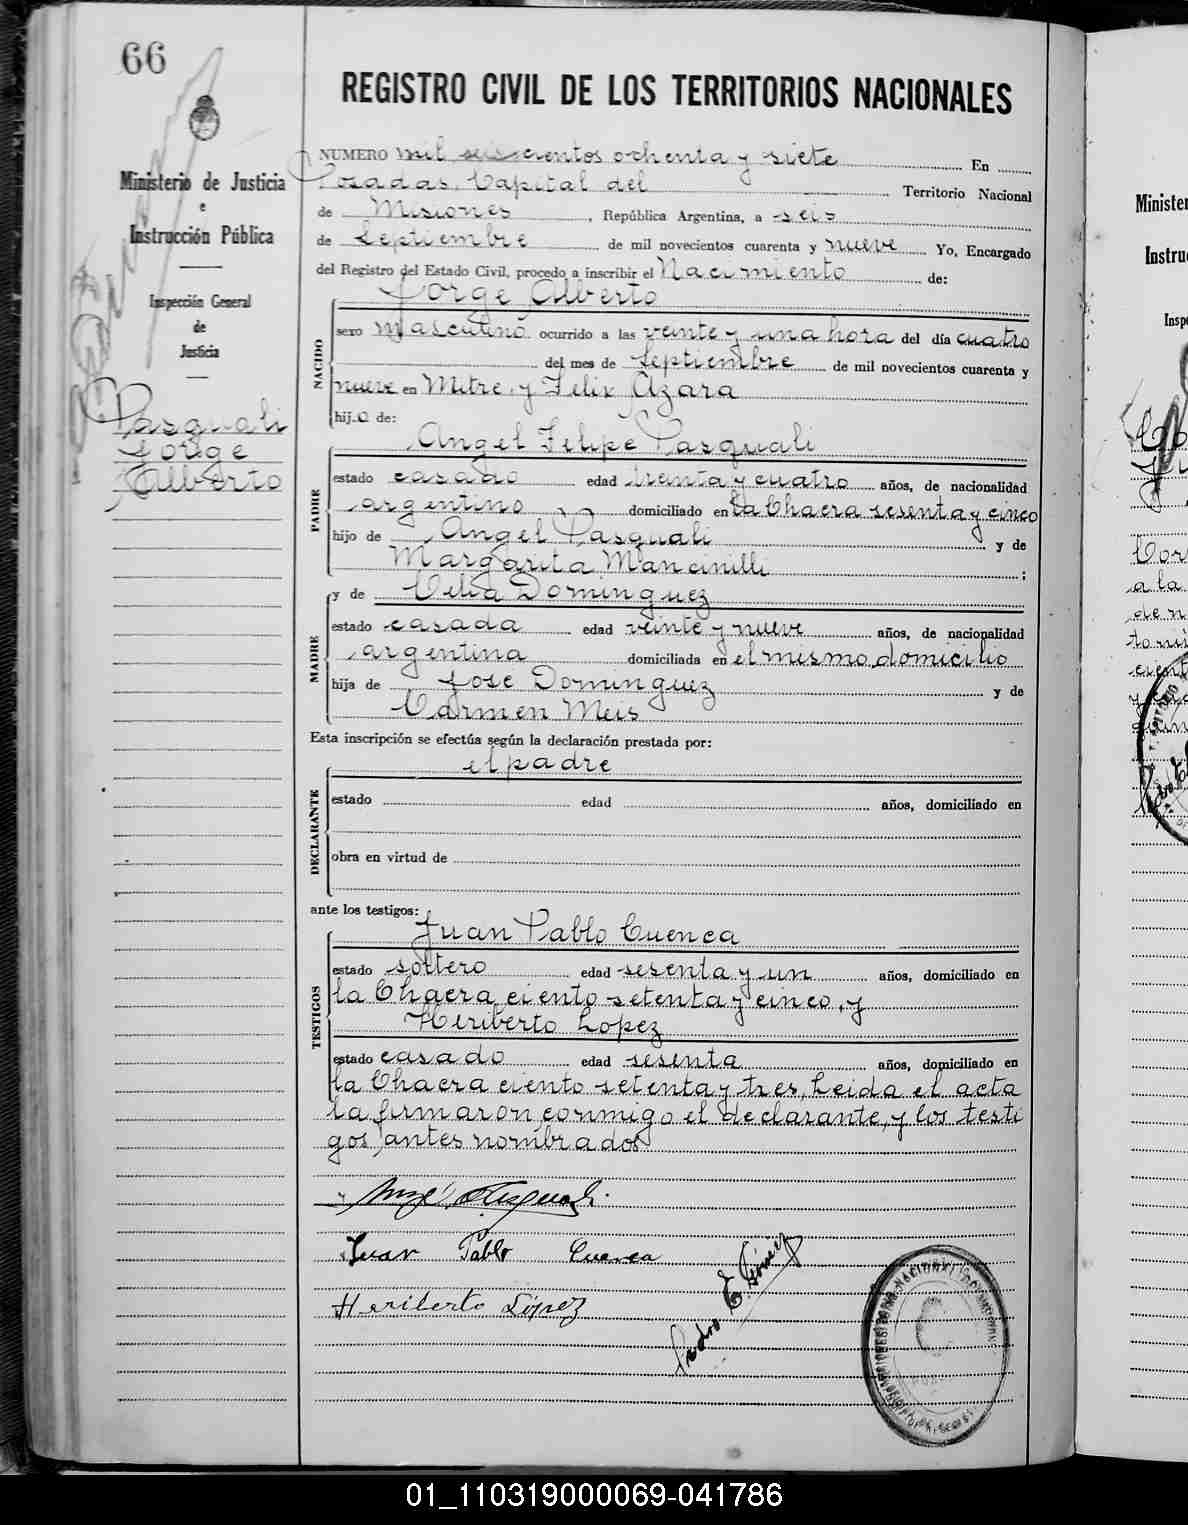 66
Ministerio de Justicia
e
Instrucción Pública
Inspección General
de
Justicia
Pasquali
Jorge
Alberto
REGISTRO CIVIL DE LOS TERRITORIOS NACIONALES
NUMERO mil seiscientos ochenta y siete En
Posadas, Capital del Territorio Nacional
de Misiones, República Argentina, a seis
de Septiembre de mil novecientos cuarenta y nueve Yo, Encargado
del Registro del Estado Civil, procedo a inscribir el Nacimiento de:
Jorge Alberto
NACIDO
sexo Masculino ocurrido a las veinte y una hora del día cuatro
del mes de Septiembre de mil novecientos cuarenta y
nueve en Mitre, y Felix Azara
hij o de:
Angel Felipe Pasquali
PADRE
estado casado edad treinta y cuatro años, de nacionalidad
argentino domiciliado en la Chacra sesenta y cinco
hijo de Angel Pasquali y de
Margarita Mancinilli ;
y de Celia Dominguez
MADRE
estado casada edad veinte y nueve años, de nacionalidad
argentina domiciliada en el mismo domicilio
hija de Jose Dominguez y de
Carmen Meis
Esta inscripción se efectúa según la declaración prestada por:
el padre
DECLARANTE
estado edad años, domiciliado en
obra en virtud de
ante los testigos:
Juan Pablo Cuenca
TESTIGOS
estado soltero edad sesenta y un años, domiciliado en
la Chacra ciento setenta y cinco, y
Heriberto Lopez
estado casado edad sesenta años, domiciliado en
la Chacra ciento setenta y tres, Leida el acta
la firmaron conmigo el declarante, y los testi
gos antes nombrados
Juan Pablo Cuenca
Heriberto López
Pedro E. Gómez
01_110319000069-041786